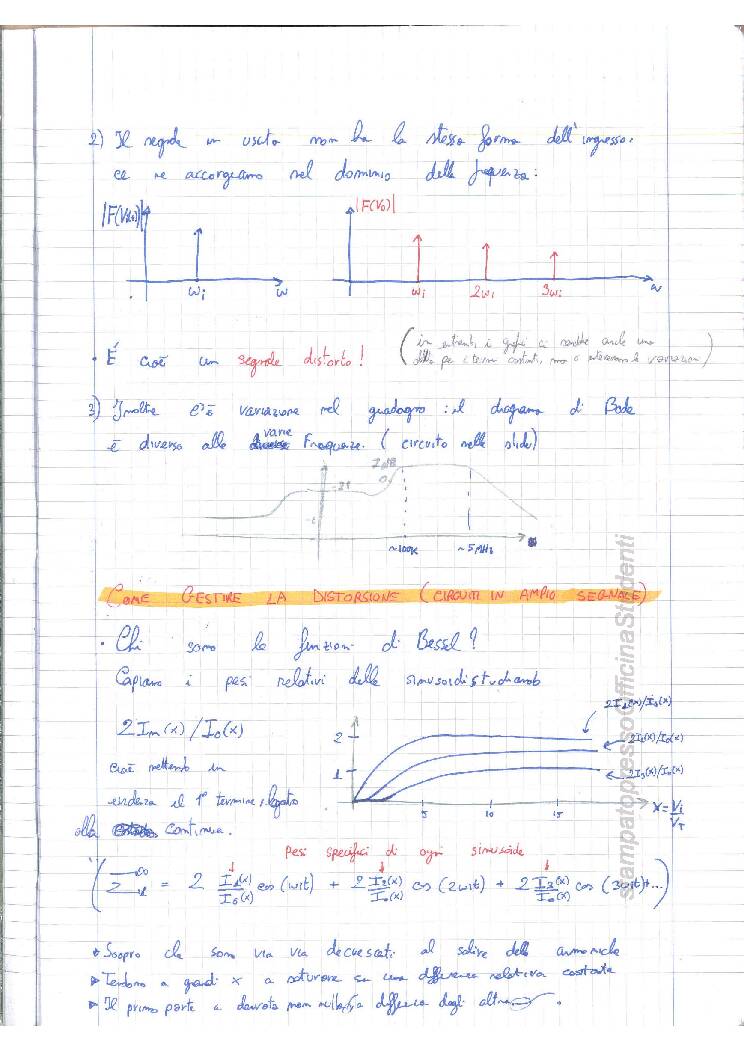 2) Il segnale in uscita non ha la stessa forma dell'ingresso:
ce ne accorgiamo nel dominio della frequenza:
|F(V
|F(V₀)|
ωi ω
ωi 2ωi 3ωi ω
• È cioè un segnale distorto!
(in entrambi i grafici ci sarebbe anche una
delta per i termini costanti, ma a interessano le variazioni)
3) Inoltre c'è variazione nel guadagno: il diagramma di Bode
è diverso alle varie Frequenze. (circuito nelle slide)
~100K ~5MHz
COME GESTIRE LA DISTORSIONE (CIRCUITI IN AMPIO SEGNALE)
• Chi sono le funzioni di Bessel?
Capiamo i pesi relativi delle sinusoidi studiando
2Im(x)/I₀(x)
cioè mettendo in
evidenza il 1° termine, legato
alla continua.
2I₁(x)/I₀(x)
2I₂(x)/I₀(x)
2I₃(x)/I₀(x)
2
1
5 10 15
x = Vi/VT
Pesi specifici di ogni sinusoide
(Σ₁^∞ = 2 I₁(x)/I₀(x) cos (ωit) + 2 I₂(x)/I₀(x) cos (2ωit) + 2 I₃(x)/I₀(x) cos (3ωit)+...)
Scopro che sono via via decrescenti al salire delle armoniche
▸ Tendono a grandi x a saturare su una differenza relativa costante
▸ Il primo parte a derivata non nulla, a differenza degli altri
StampatopressoOfficinaStudenti